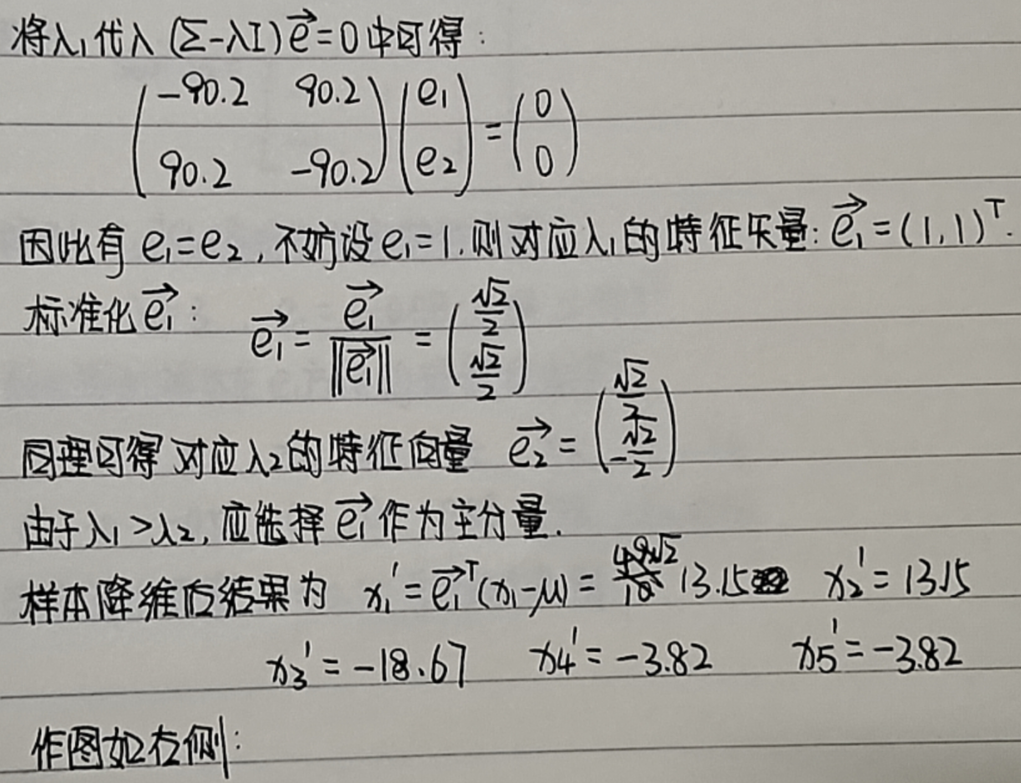 将λ₁代入 (Σ-λI)e⃗=0中可得：
(-90.2 90.2; 90.2 -90.2)(e₁; e₂)=(0; 0)
因此有 e₁=e₂，不妨设e₁=1.则对应λ₁的特征矢量：e₁⃗=(1,1)ᵀ.
标准化e₁⃗： e₁⃗=e₁⃗/||e₁⃗||=(√2/2; √2/2)
同理可得 对应λ₂的特征向量 e₂⃗=(√2/2; -√2/2)
由于λ₁>λ₂，应选择 e₁⃗作为主分量.
样本降维后结果为 x₁'=e₁⃗ᵀ(x₁-μ)= 13.15 x₂'=13.15
x₃'=-18.67 x₄'=-3.82 x₅'=-3.82
作图如右侧：